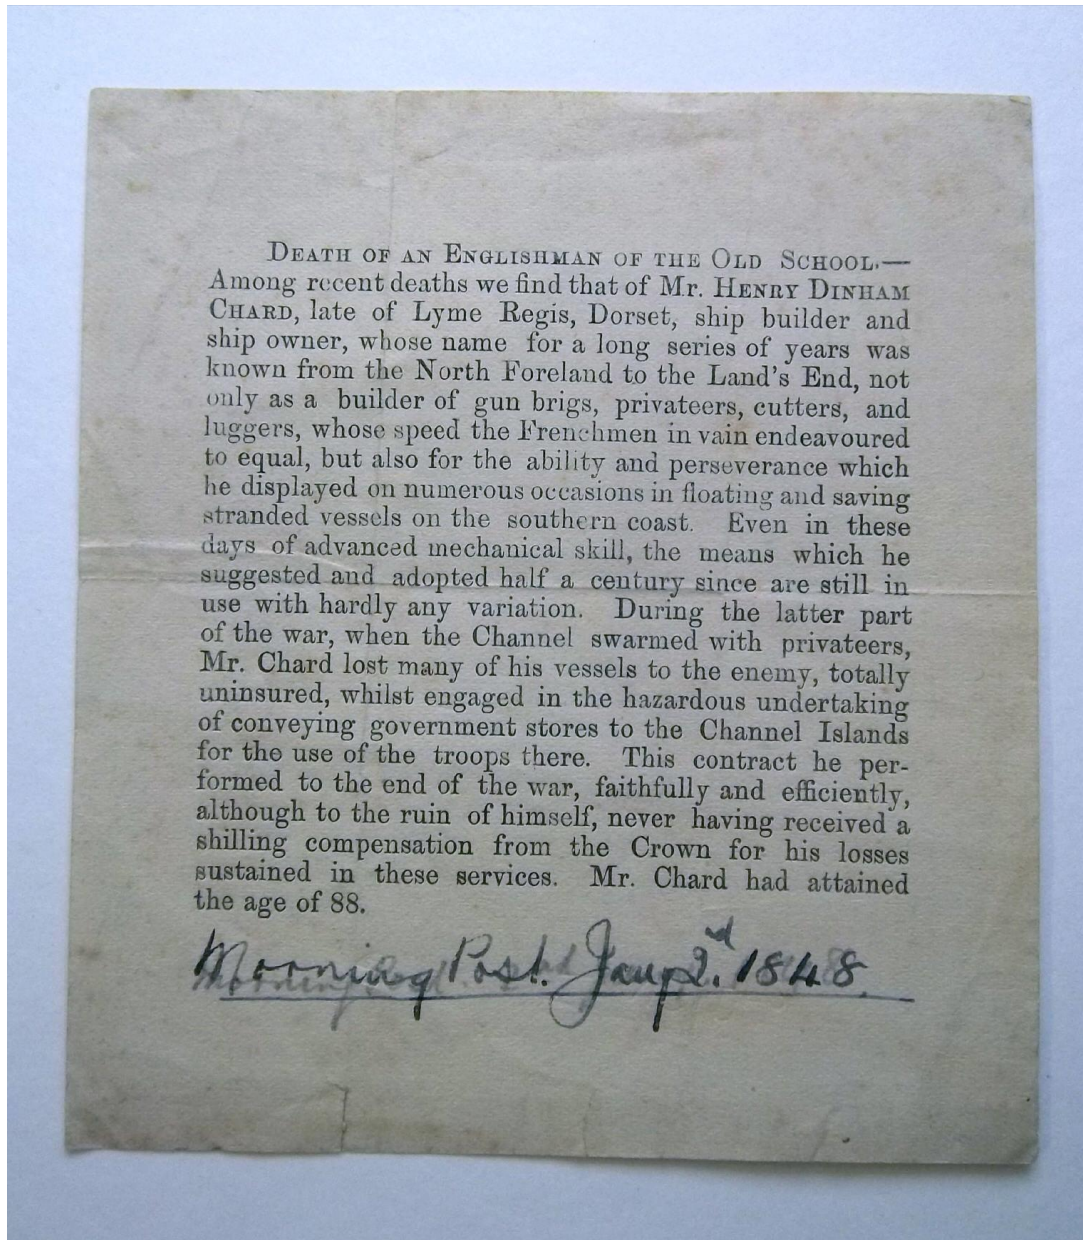 DEATH OF AN ENGLISHMAN OF THE OLD SCHOOL.—
Among recent deaths we find that of Mr. HENRY DINHAM
CHARD, late of Lyme Regis, Dorset, ship builder and
ship owner, whose name for a long series of years was
known from the North Foreland to the Land's End, not
only as a builder of gun brigs, privateers, cutters, and
luggers, whose speed the Frenchmen in vain endeavoured
to equal, but also for the ability and perseverance which
he displayed on numerous occasions in floating and saving
stranded vessels on the southern coast. Even in these
days of advanced mechanical skill, the means which he
suggested and adopted half a century since are still in
use with hardly any variation. During the latter part
of the war, when the Channel swarmed with privateers,
Mr. Chard lost many of his vessels to the enemy, totally
uninsured, whilst engaged in the hazardous undertaking
of conveying government stores to the Channel Islands
for the use of the troops there. This contract he per-
formed to the end of the war, faithfully and efficiently,
although to the ruin of himself, never having received a
shilling compensation from the Crown for his losses
sustained in these services. Mr. Chard had attained
the age of 88.
Morning Post. Jany 2nd. 1848.